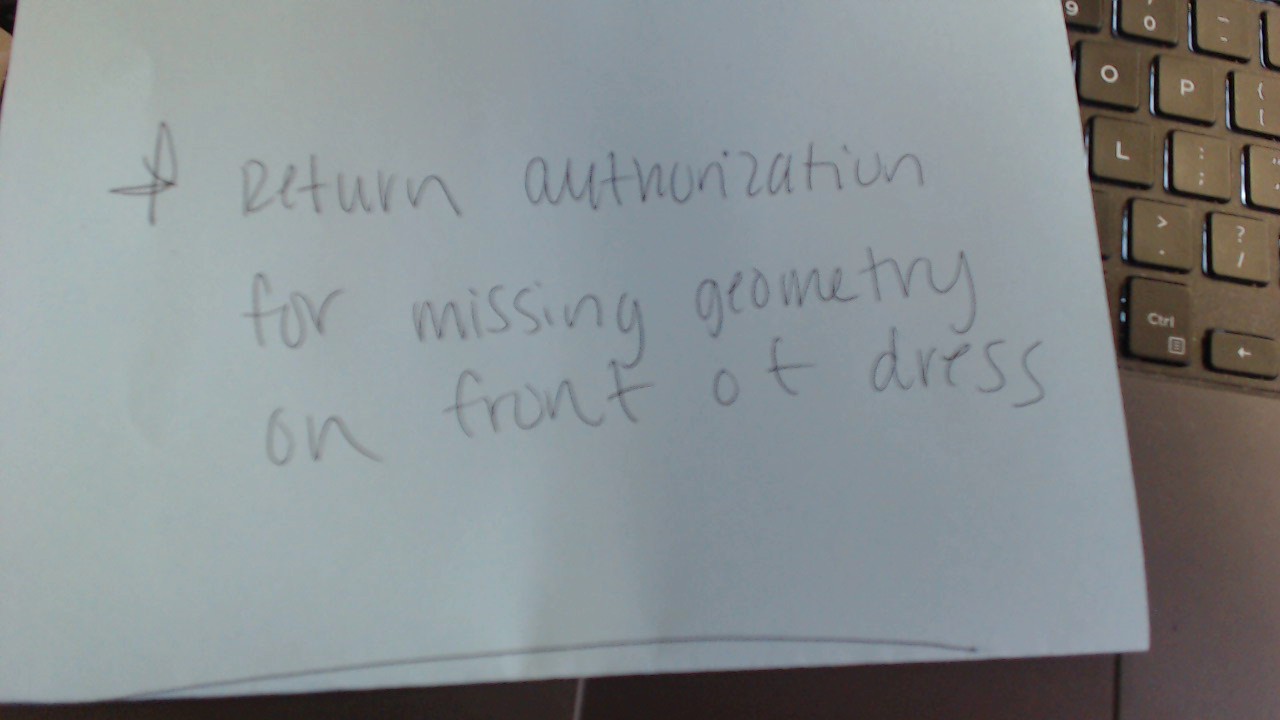 * Return authorization
for missing geometry
on front of dress
9 ) 0 _ -
O P { [
L : ; "
> . ? /
Ctrl